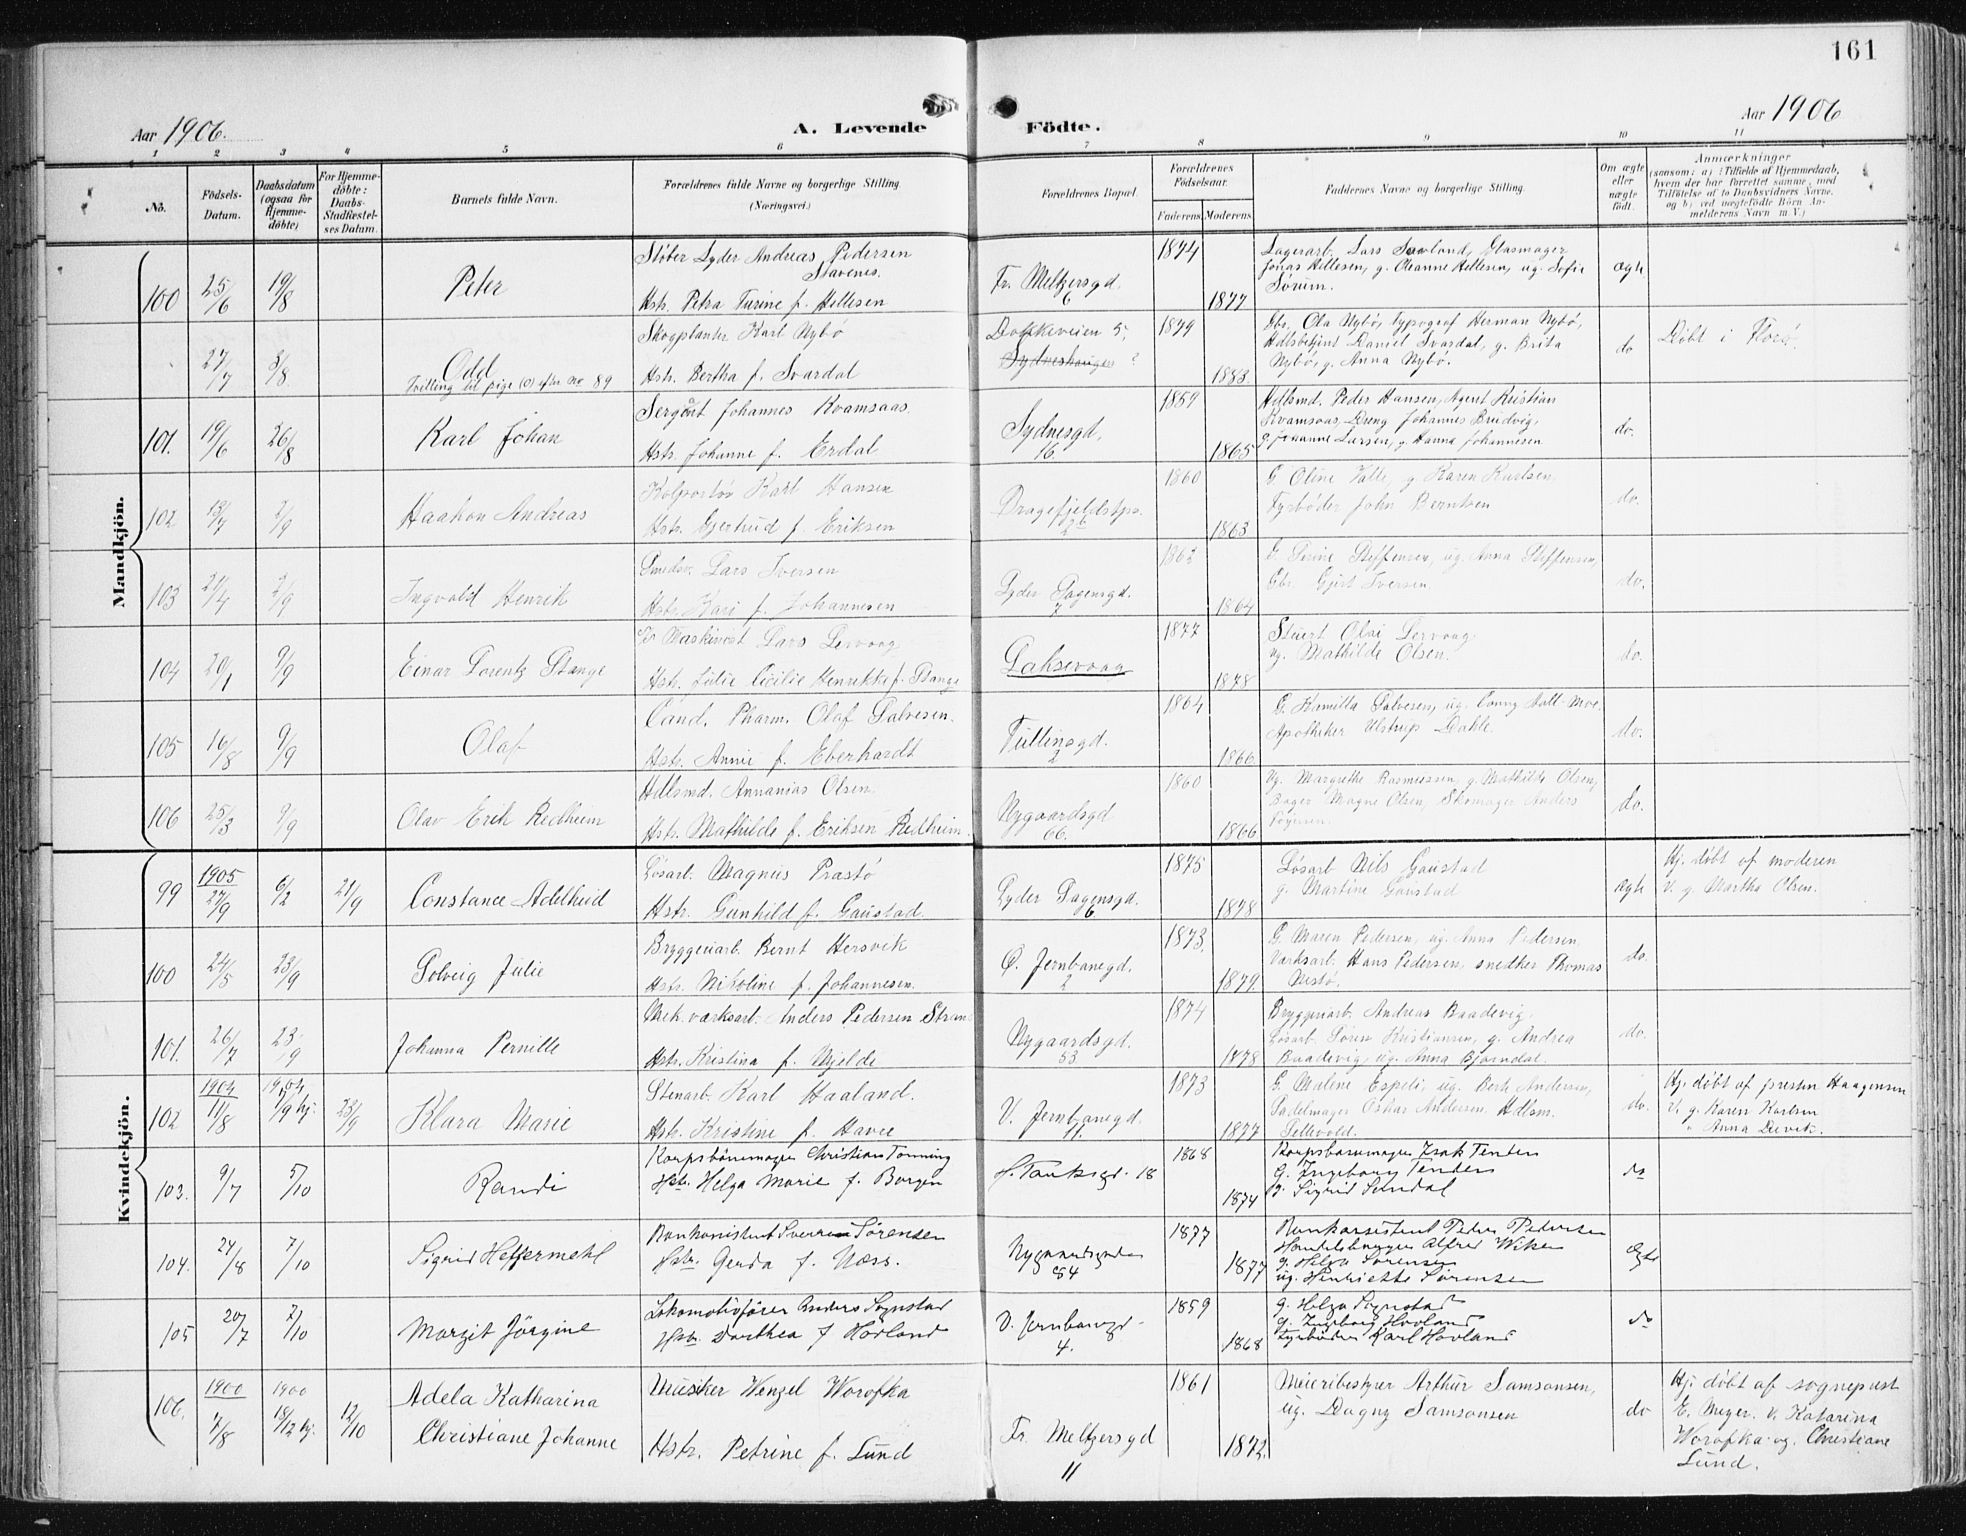 161
Aar 1906.
A. Levende Födte.
Aar 1906
1 2 3 4 5 6 7 8 9 10 11
No.
Födsels-Datum.
Daabsdatum (ogsaa for Hjemmedöbte)
For Hjemmedöbte: Daabs-Stadfæstelses Datum.
Barnets fulde Navn.
Forældrenes fulde Navne og borgerlige Stilling (Næringsvei.)
Forældrenes Bopæl.
Forældrenes Födselsaar.
Faderens. Moderens.
Faddernes Navne og borgerlige Stilling.
Om ægte eller uægte födt.
Anmærkninger
(saasom: a) i Tilfælde af Hjemmedaab, hvem der har forrettet samme, med Tilföielse af to Daabsvidners Navne, og b) ved uægtefödte Börn Anmelderens Navn m. V.)
Mandkjön.
100 25/6 19/8 Peter
Støber Lyder Andreas Pedersen Stavenes.
Hstr. Petra Turine f. Hellesen
Fr. Meltzersgd. 6
1874 1877
Lagerarb. Lars Sævland, Glasmager
Jonas Hellesen, g. Oleanne Hellesen, ug. Sofie
Sörum.
ægte
27/7 3/8 Odd
Tvilling til pige (0) efter no 89
Skogplanter Karl Nybø
Hstr. Bertha f. Svardal
Dokkeveien 5,
Sydneshaugen ?
1879 1883
Gbr. Ola Nybø, typograf Herman Nybø,
Hdlsbetjent Daniel Svardal, g. Brita
Nybø, g. Anna Nybø.
do
Døbt i Florø.
101. 19/6 26/8 Karl Johan
Sergent Johannes Kvamsaas.
Hstr. Johanne f. Erdal
Sydnesgd. 16.
1859 1865
Hdlsmd. Peder Hansen, Agent Kristian
Kvamsaas, Dreng Johannes Brudvig,
g. Johanne Larsen, g. Hanna Johannesen
do.
102 13/7 2/9 Haakon Andreas
Kolportör Karl Hansen
Hstr. Gjertrud f. Eriksen
Dragefjeldstpr. 26
1860 1863
G. Oline Valle, g. Karen Karlsen,
Fyrbøder John Berntsen
do.
103 21/4 2/9 Ingvald Henrik
Smedsv. Lars Iversen
Hstr. Kari f. Johannesen
Lyder Sagensgd. 7
1862 1864
G. Serine Steffensen, ug. Anna Steffensen,
Gbr. Gjert Iversen
do.
104 20/1 9/9 Einar Lorentz Stange
Maskinist Lars Lervaag
Hstr. Julie Cecilie Henrikke f. Stange
Laksevaag
1877 1878
Stuert Olai Lervaag.
ug. Mathilde Olsen.
do.
105 16/8 9/9 Olaf
Cand. Pharm. Olaf Salvesen.
Hstr. Annie f. Eberhardt
Tullinsgd. 2
1864 1866
G. Kamilla Salvesen, ug. Conny Dall-Moe,
Apotheker Ulstrup Dahle.
do.
106 25/3 9/9 Olav Erik Redheim
Hdlsmd. Annanias Olsen.
Hstr. Mathilde f. Eriksen Redheim.
Nygaardsgd 66.
1860 1866
Ug. Margrethe Rasmussen, g. Mathilde Olsen,
Bager Magne Olsen, Skomager Anders
do.
Kvindekjön.
99 1905 27/9 6/2 21/9 Constance Adelheid
Løsarb. Magnus Prastø
Hstr. Gunhild f. Gaustad.
Lyder Sagensgd. 6
1875 1878
Løsarb. Nils Gaustad
g. Martine Gaustad
ægte
Hj. døbt af moderen
v. g. Martha Olsen.
100 24/5 23/9 Solveig Julie
Bryggeriarb. Bernt Hersvik
Hstr. Nikoline f. Johannesen.
Ø. Jernbanegd. 2
1873. 1879.
G. Maren Pedersen, ug. Anna Pedersen,
Værksarb. Hans Pedersen, snedker Thomas
Nestø.
do.
101. 26/7 23/9 Johanna Pernille
Mek. værksarb. Anders Pedersen Stran
Hstr. Kristina f. Mjelde
Nygaardsgd. 53
1874 1878
Bryggeriarb. Andreas Baadevig.
Løsarb. Sören Kristiansen, g. Andrea
Baadevig, ug. Anna Bjørndal.
do.
102 1904 11/8 1904 1/9 hj. 23/9 Klara Marie
Stenarb. Karl Haaland.
Hstr. Kristine f. Havre
V. Jernbanegd. 11.
1873 1877
G. Maline Espeli, ug. Berte Andersen,
Sadelmager Oskar Andersen. Hdlsm.
Sellevold.
do.
Hj. døbt af presten Haagensen
v. g. Karen Karlsen
" Anna Devik.
103. 9/7 5/10 Randi
Korpsbøssemager Christian Tønning
Hstr. Helga Marie f. Borgen
H. Tanksgd. 18
1868 1874
Korpsbøssemager Isak Tenden
G. Ingeborg Tenden
g. Sigrid Sundal
do
104. 24/8 7/10 Sigrid Heffermehl
Bankassistent Sverre Sørensen
Hstr. Gerda f. Næss.
Nygaardsgaden 84
1877 1877
Bankassistent Peder Pedersen
Handelsborger Alfred Wiken
g. Helga Sørensen
ug. Henriette Sørensen
ægte
105 20/7 7/10 Margit Jørgine
Lokomotivfører Anders Sognstad
Hstr. Dorthea f Hovland
V. Jernbanegd. 4.
1859 1868
g. Helga Sognstad
g. Ingeborg Hovland
Fyrbøder Karl Hovland
do
106. 1900 7/8 1900 18/12 hj. 12/10 Adela Katharina
Christiane Johanne
Musiker Wenzel Worofka
Hstr. Petrine f. Lund
Fr. Meltzersgd 11
1861 1872.
Meieribestyrer Arthur Samsonsen,
ug. Dagny Samsonsen
do
Hj. døbt af sogneprest
E. Meyer. v. Katarina
Worofka og Christiane
Lund.